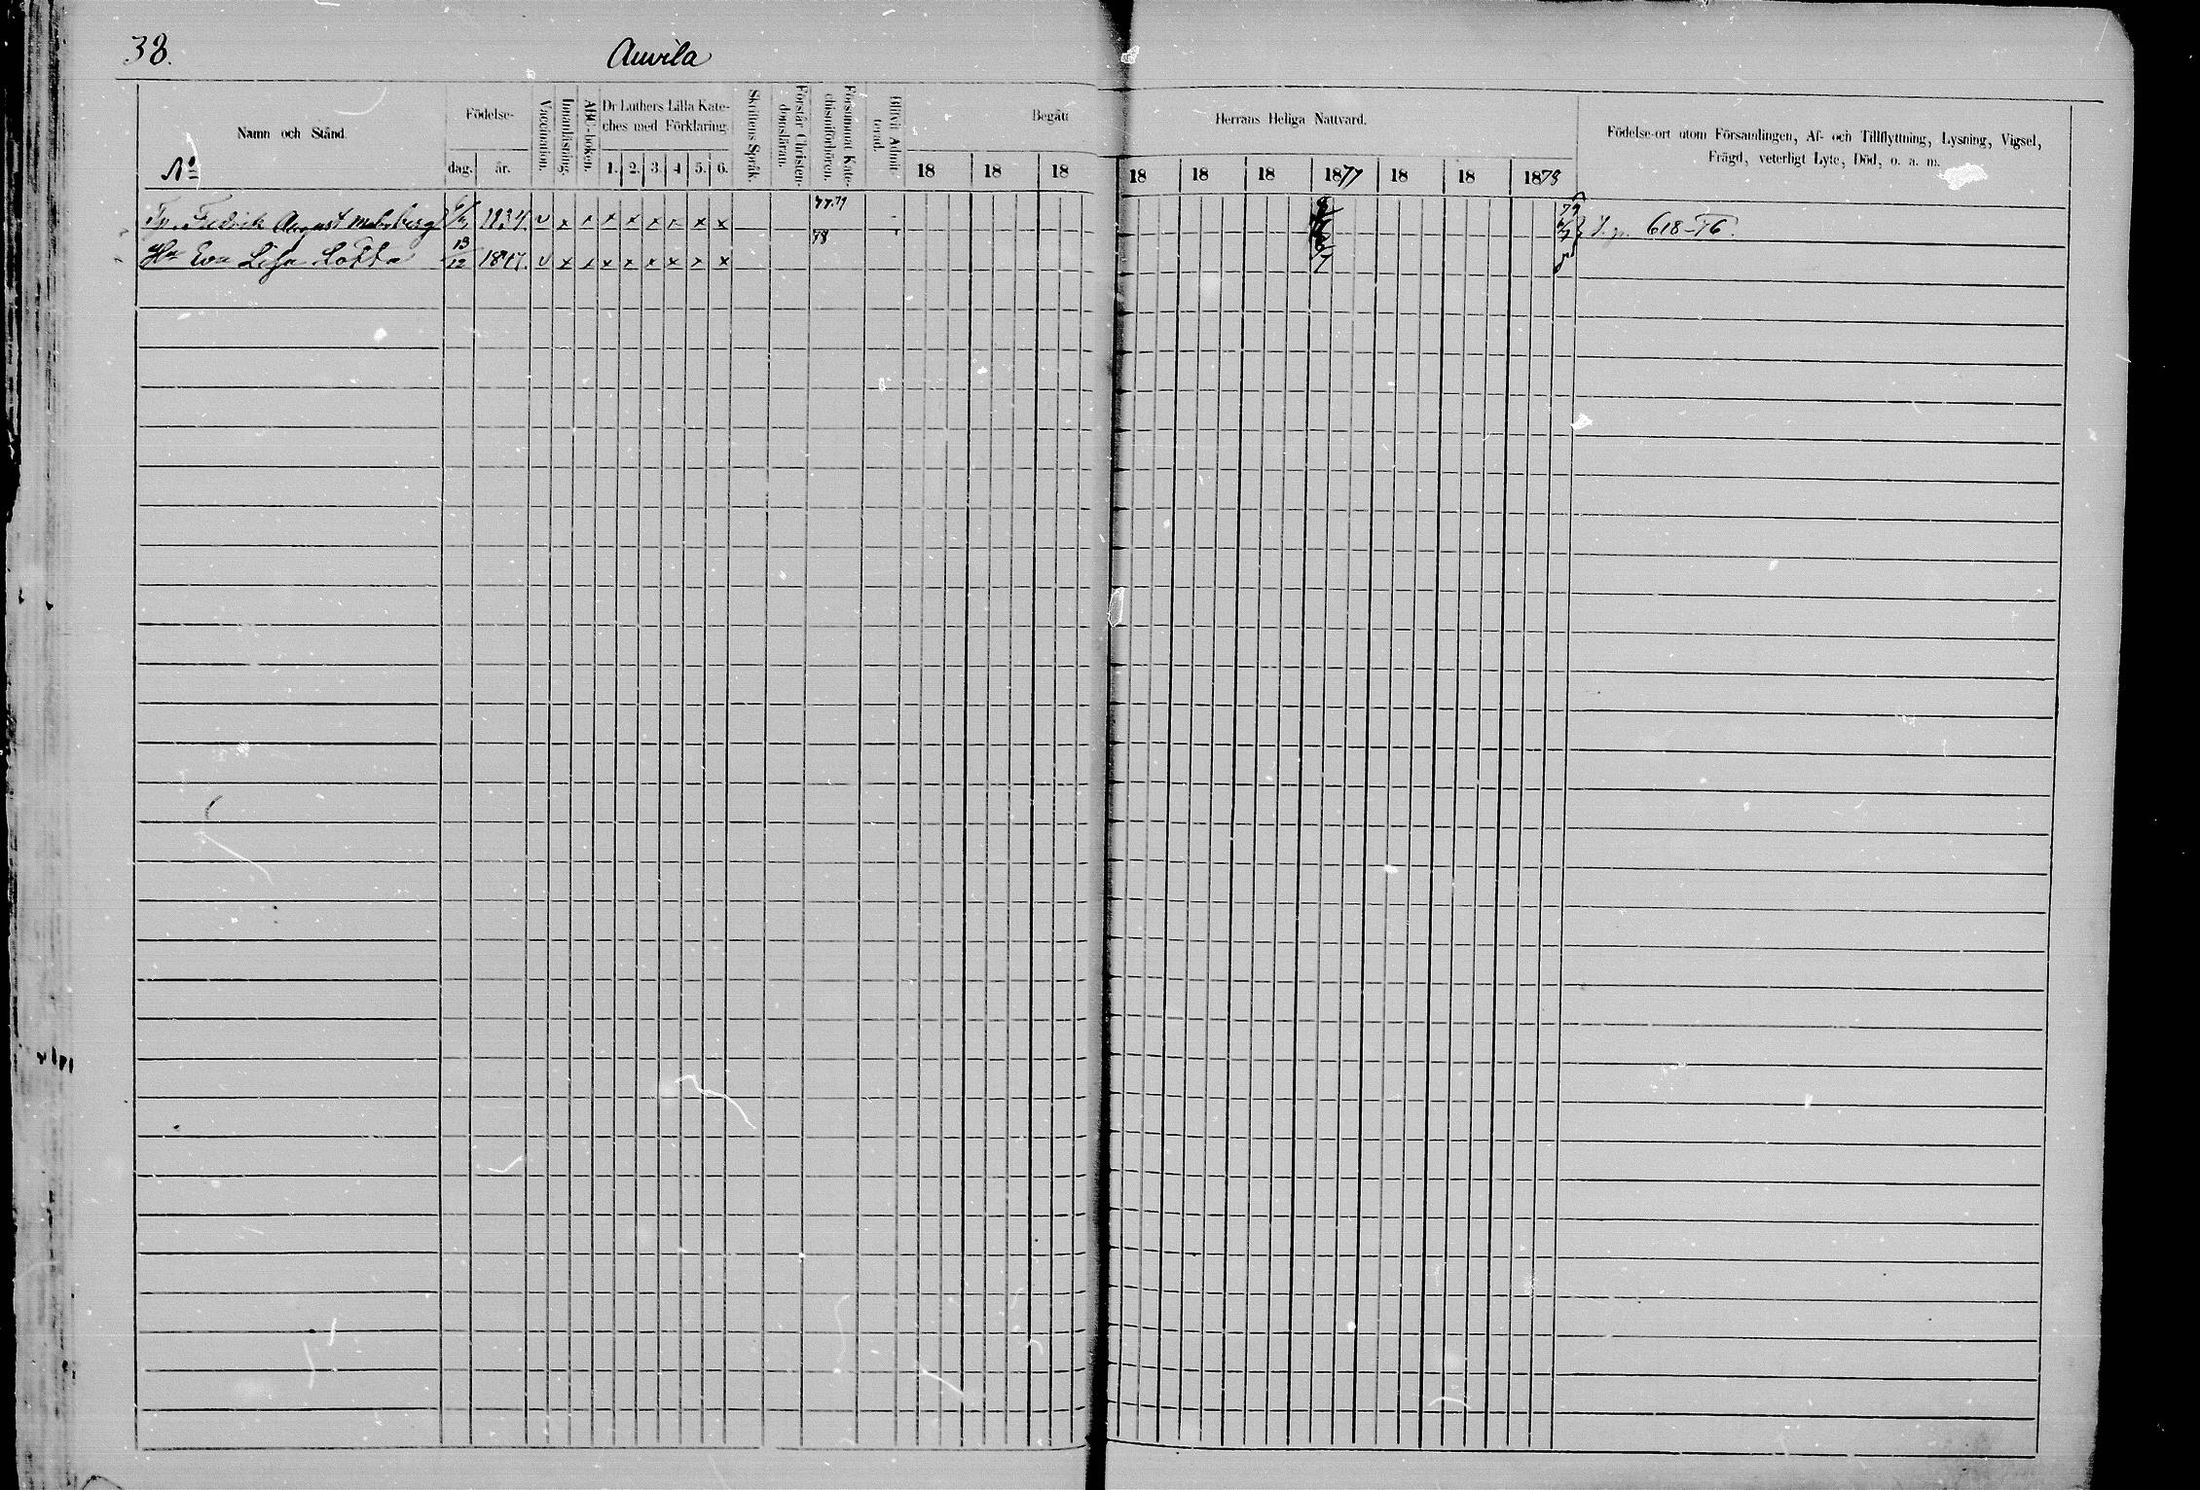 38.
Auvila
Namn och Stånd.
No
Födelse-
dag.
år.
Vaccination.
Innanläsning.
ABC-boken.
Dr Luthers Lilla Kate-
ches med Förklaring.
1. 2. 3. 4 5. 6.
Skriftens Språk.
Förstår Christen-
domsläran.
Försummat Kate-
chismiförhören.
Blifvit Admit-
terad.
Begått
18 18 18
Herrans Heliga Nattvard.
18 18 18 1877 18 18 1878
Födelse-ort utom Församlingen, Af- och Tillflyttning, Lysning, Vigsel,
Frägd, veterligt Lyte, Död, o. a. m.
Fredrik August 1834 v x x x x x x x x 77.79 618-76.
Hu Eva Lisa Lotta 13/12 v x x x x x x x x 78